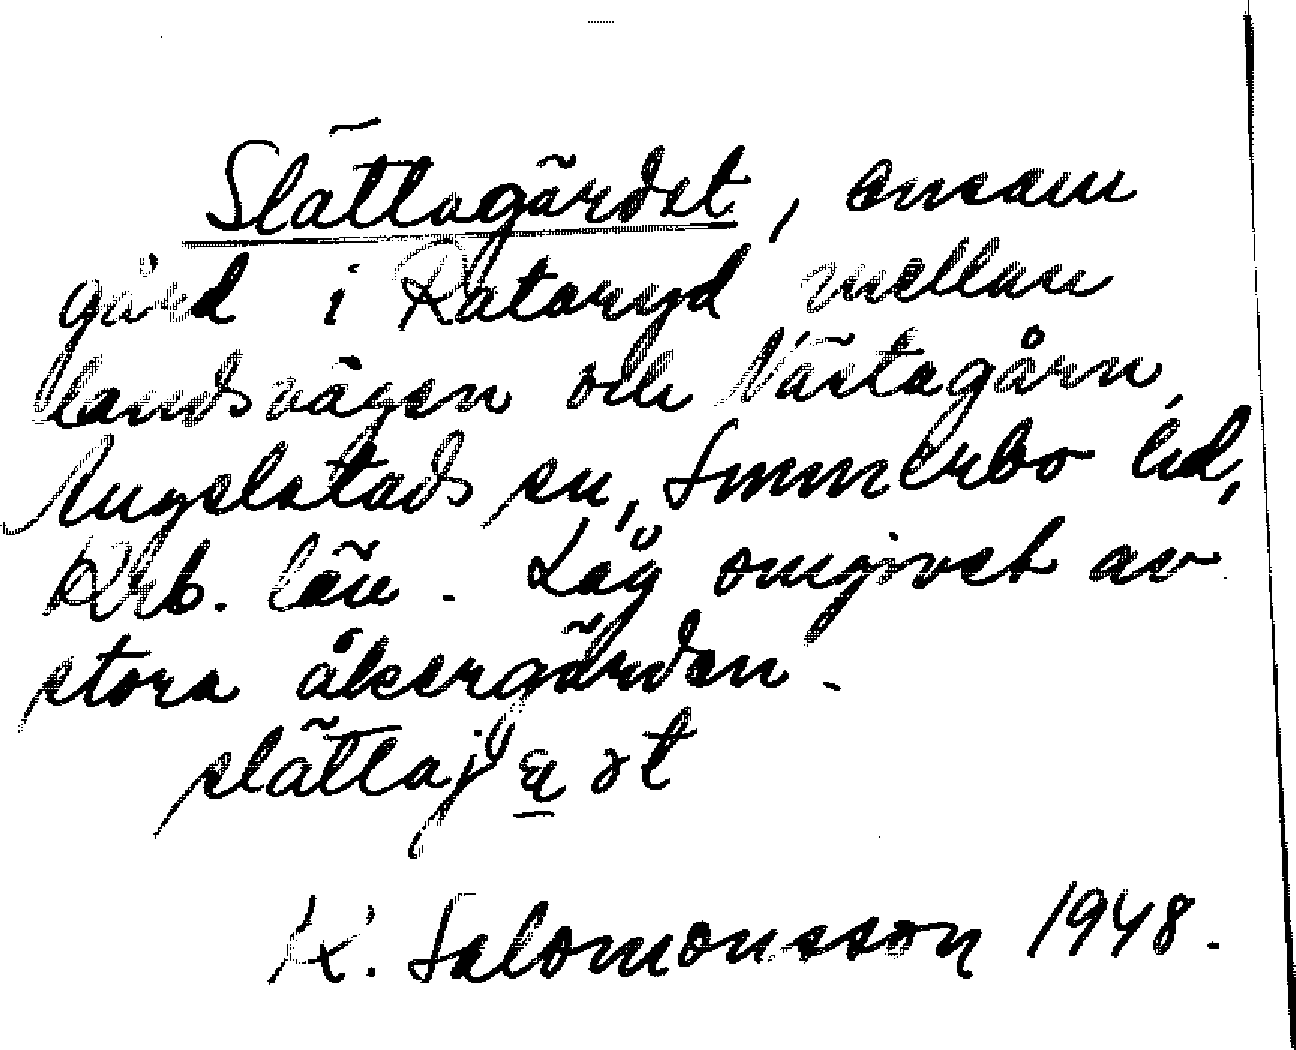 Slättagärdet, ensam
gård i Rataryd mellan
landsvägen och Västagårn,
Angelstads sn, Sunnerbo hd,
Krb. län. Låg omgivet av
stora åkergärden.
K. Salomonsson 1948.